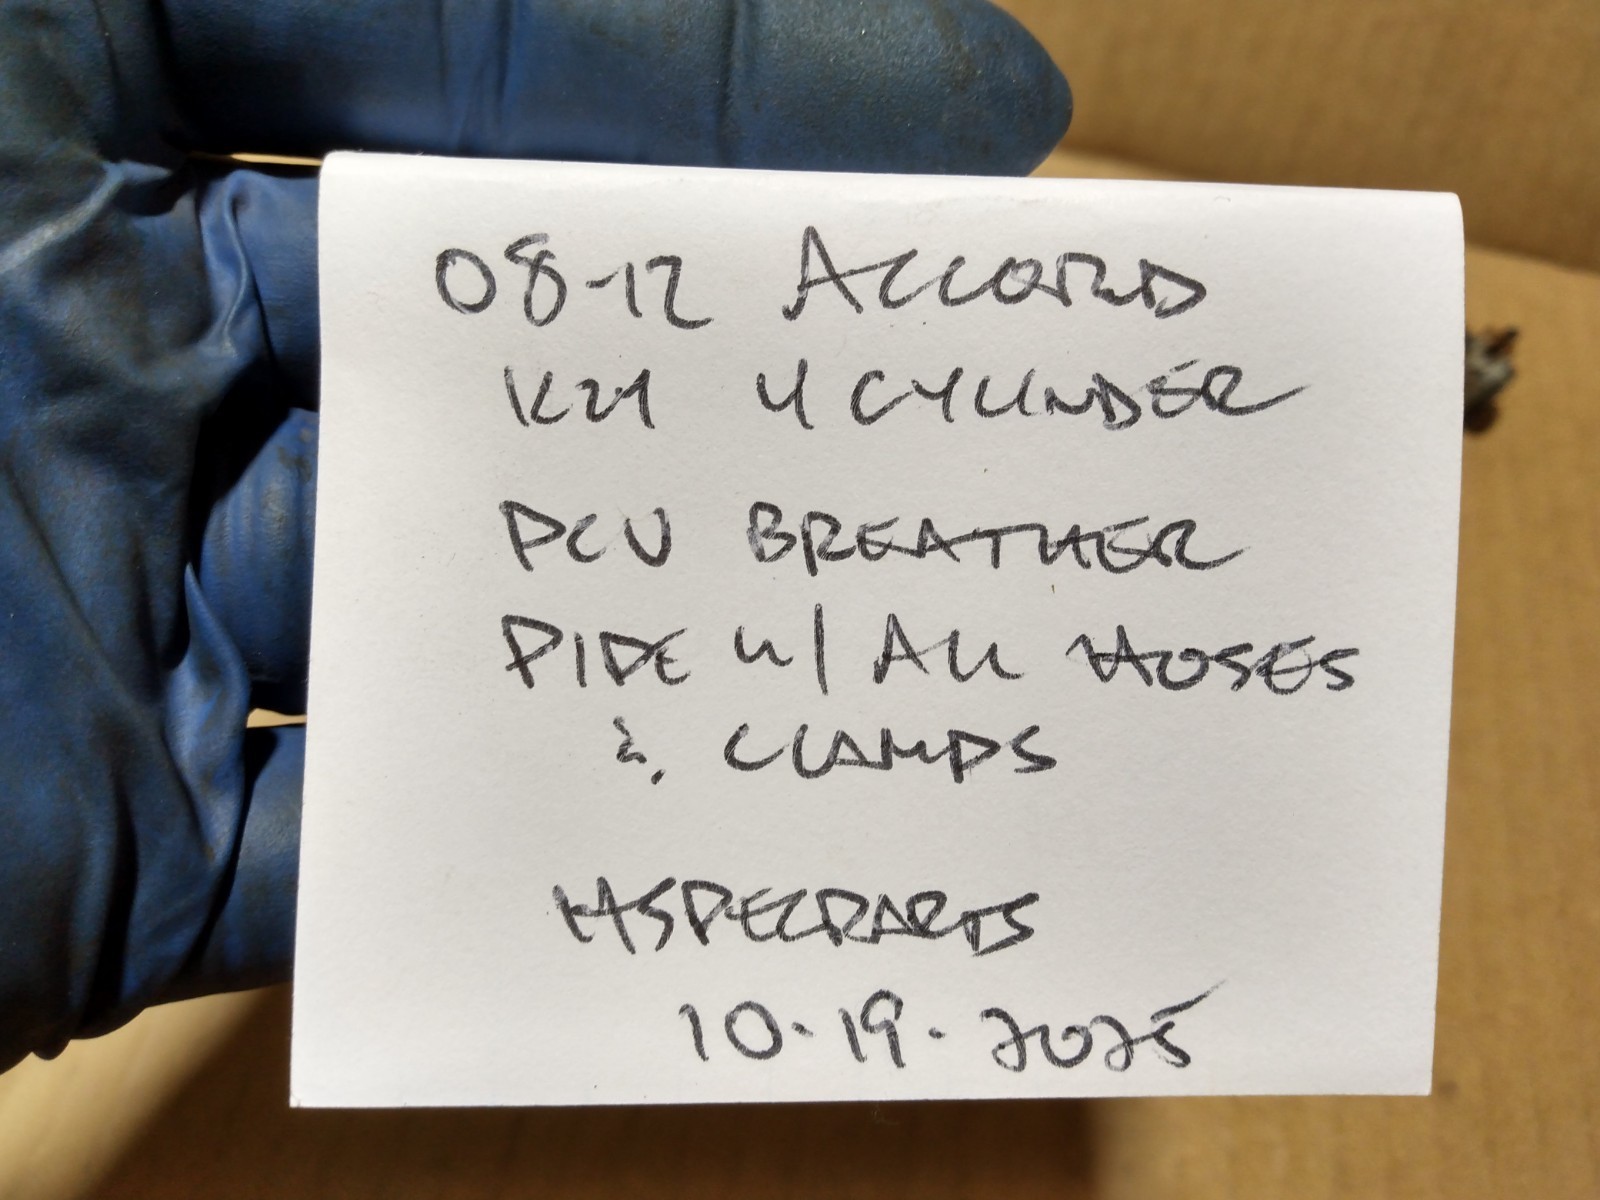 08-12 ACCORD
K24 4 CYLINDER
PCV BREATHER
PIPE W/ ALL HOSES
& CLAMPS
HSPECPARTS
10-19-2025